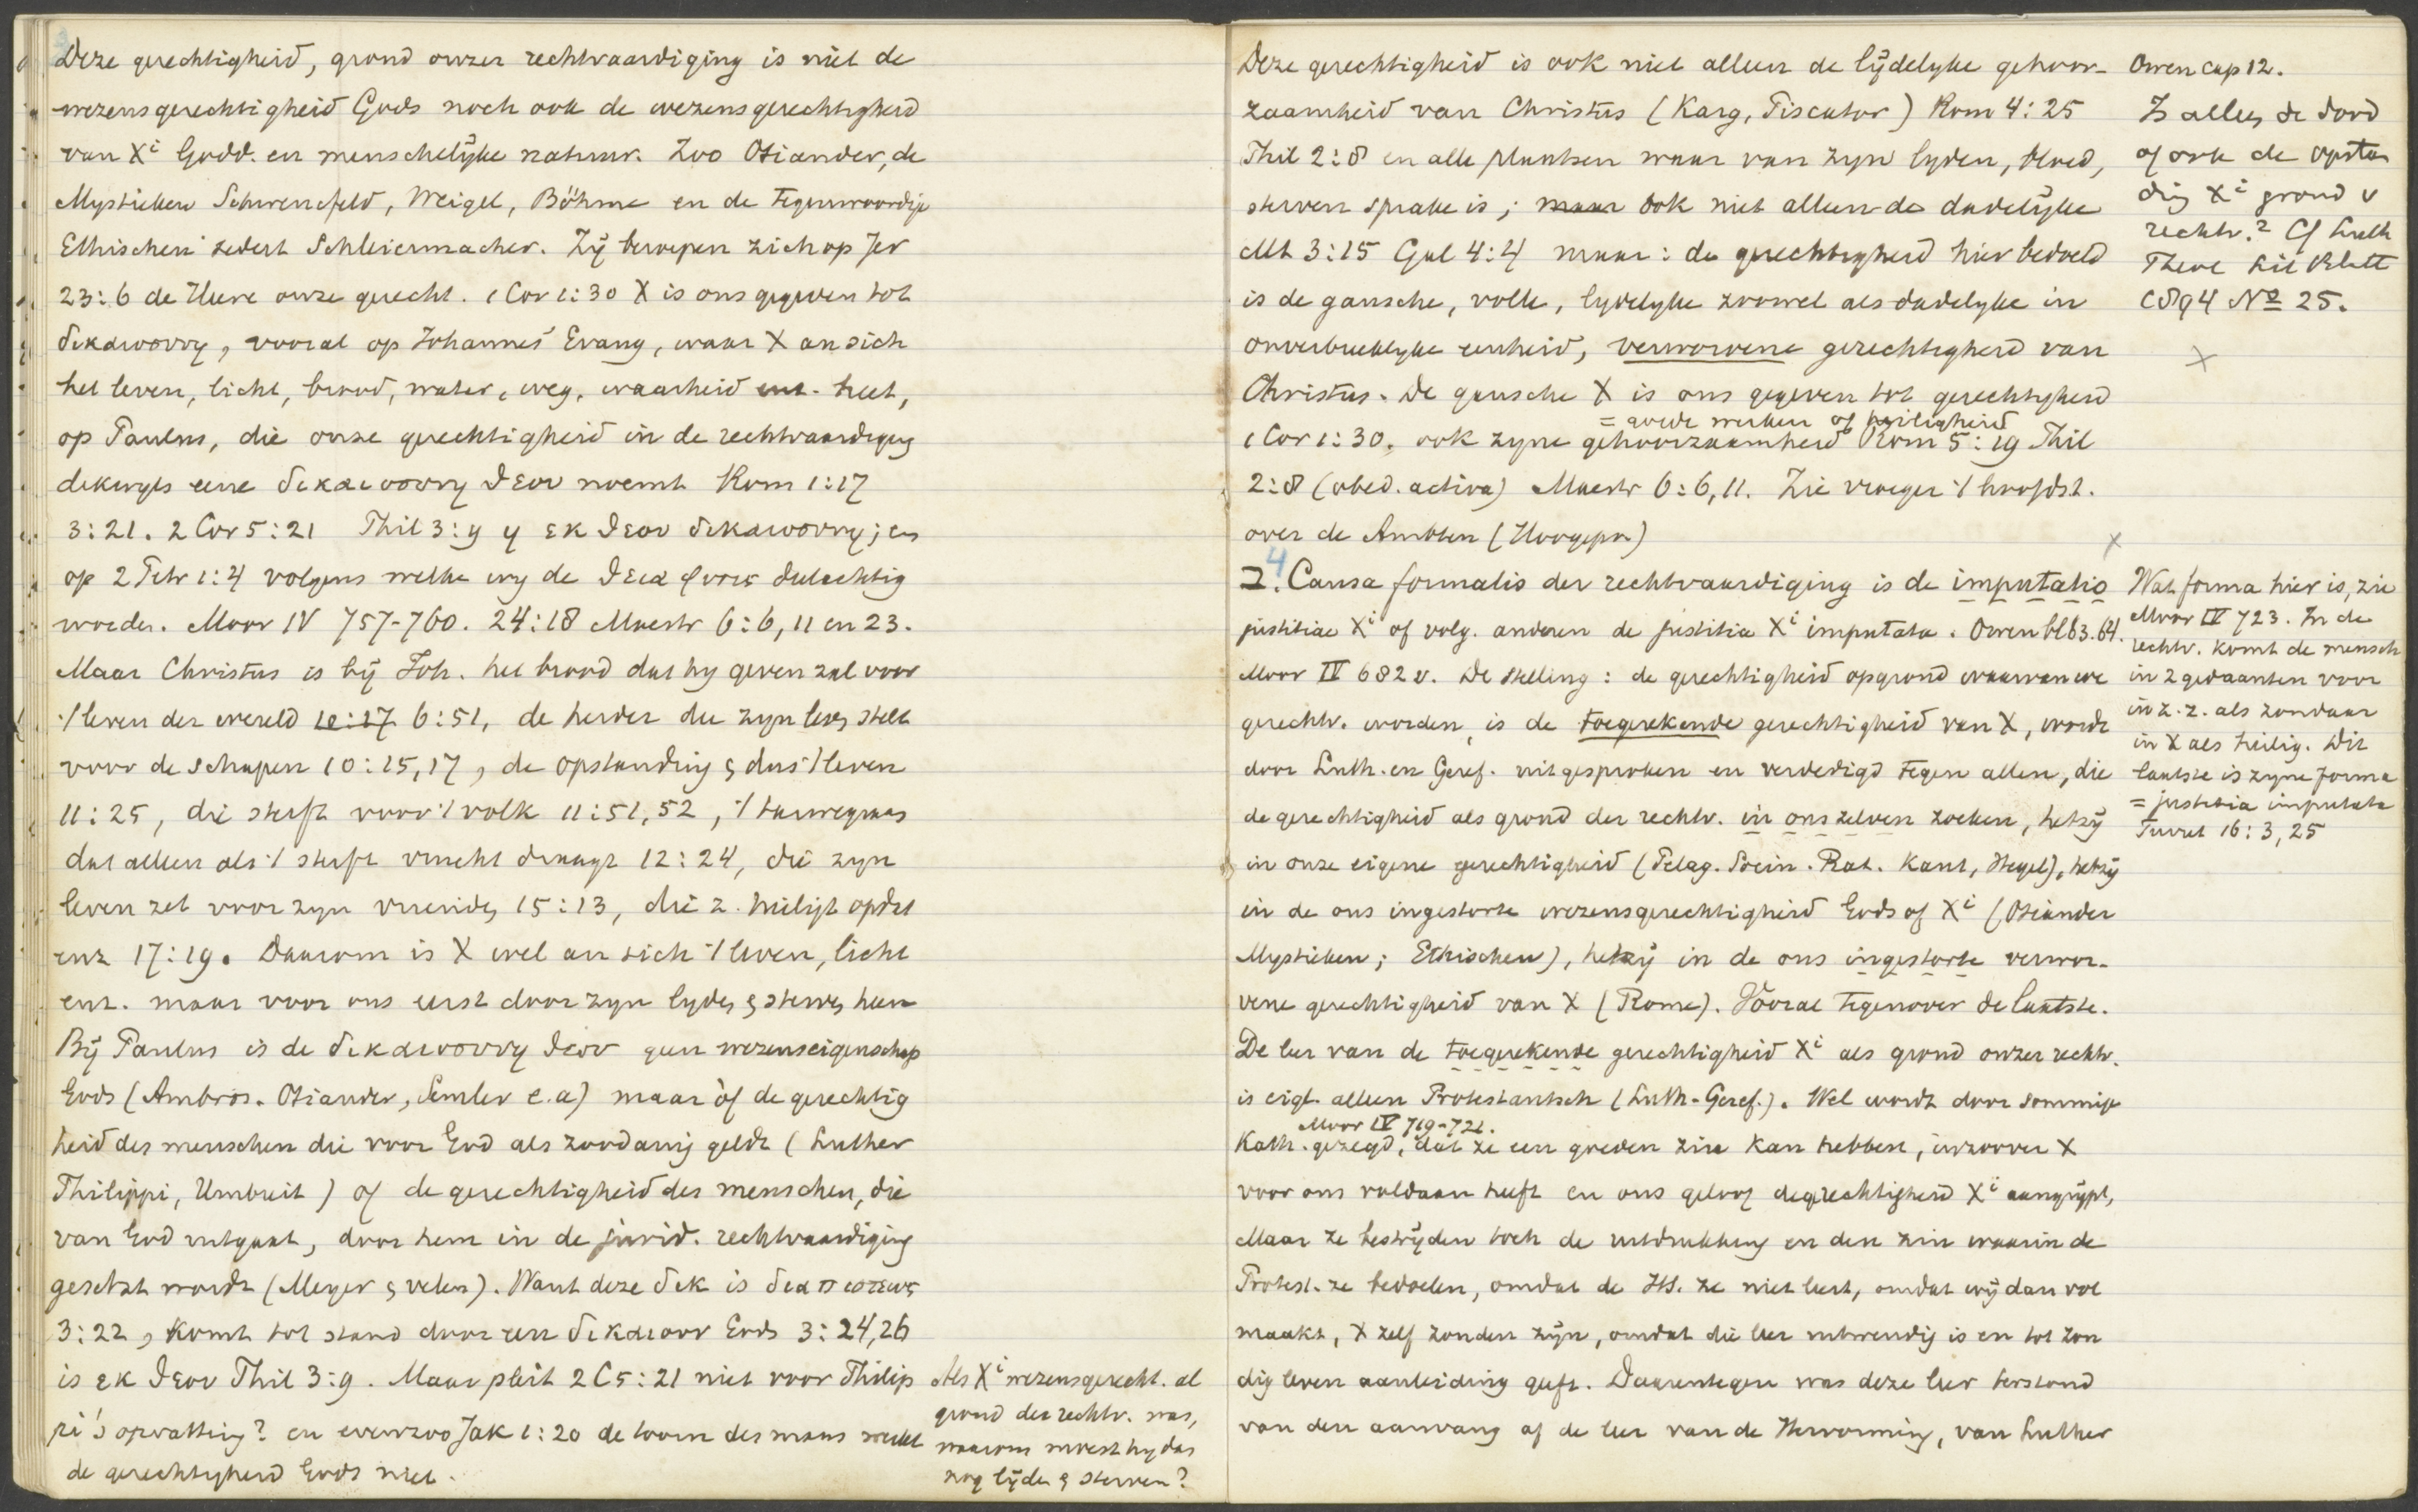 Deze gerechtigheid, grond onzer rechtvaardiging is niet de
wezensgerechtigheid Gods noch ook de wezensgerechtigheid
van Xi Godd. en menschelijke natuur. Zoo Osiander, de
Mystieken Schwencfeld, Weigel, Böhme en de tegenwoordige
Ethischen sedert Schleiermacher. Zij beroepen zich op Jer
23:6 de Heere onze gerecht. 1 Cor 1:30 X is ons gegeven tot
δικαιοσυνη, vooral op Johannes' Evang, waar X an sich
het leven, licht, brood, water, weg, waarheid enz. heet,
op Paulus, die onze gerechtigheid in de rechtvaardiging
dikwyls eene δικαιοσυνη θεου noemt Rom 1:17
3:21. 2 Cor 5:21 Phil 3:9 η εκ θεου δικαιοσυνη; en
op 2 Petr 1:4 volgens welke wy de θεια φυσις deelachtig
worden. Moor IV 757-760. 24:18 Maestr 6:6, 11 en 23.
Maar Christus is bij Joh. het brood dat hy geven zal voor
't leven der wereld 10:17 6:51, de herder die zyn leven stelt
voor de schapen 10:15,17, de opstanding & dus 't leven
11:25, die sterft voor 't volk 11:51,52, 't tarwegraan
dat alleen als 't sterft vrucht draagt 12:24, die zyn
leven zet voor zyn vrienden 15:13, die z. heiligt opdat
enz 17:19. Daarom is X wel an sich 't leven, licht
enz. maar voor ons eerst door zyn lyden & sterven heen
Bij Paulus is de δικαιοσυνη θεου geen wezenseigenschap
Gods (Ambros. Osiander, Semler e.a) maar òf de gerechtig
heid des menschen die voor God als zoodanig geldt (Luther
Philippi, Umbreit) of de gerechtigheid des menschen, die
van God uitgaat, door hem in de jurid. rechtvaardiging
gesetzt wordt (Meyer & velen). Want deze δικ is δια πιστεως
3:22, komt tot stand door een δικαιουν Gods 3:24,26
is εκ θεου Phil 3:9. Maar pleit 2 C 5:21 niet voor Philip
pi's opvatting? en evenzoo Jak 1:20 de toorn des mans werkt
de gerechtigheid Gods niet.
Als Xi wezensgerecht. al
grond der rechtv. was,
waarom moest hy dan
nog lijden & sterven?
Deze gerechtigheid is ook niet alleen de lijdelyke gehoor-
zaamheid van Christus (Karg, Piscator) Rom 4:25
Phil 2:8 en alle plaatsen waar van zyn lyden, bloed,
sterven sprake is; maar ook niet alleen de dadelijke
Mt 3:15 Gal 4:4 maar: de gerechtigheid hier bedoeld
is de gansche, volle, lydelyke zoowel als dadelyke in
onverbreeklyke eenheid, verworvene gerechtigheid van
Christus. De gansche X is ons gegeven tot gerechtigheid
= goede werken of heiligheid
1 Cor 1:30. ook zyne gehoorzaamheid Rom 5:19 Phil
2:8 (obed. activa) Maestr 6:6, 11. Zie vroeger 't hoofdst.
over de Ambten (Hoogepr)
4
2. Causa formalis der rechtvaardiging is de imputatio
justitiae Xi of volg. anderen de justitia Xi imputata. Owen bl 63.64.
Moor IV 682 v. De stelling: de gerechtigheid op grond waarvan we
gerechtv. worden, is de toegerekende gerechtigheid van X, wordt
door Luth. en Geref. uitgesproken en verdedigd tegen allen, die
de gerechtigheid als grond der rechtv. in ons zelven zoeken, hetzij
in onze eigene gerechtigheid (Pelag. Socin. Rat. Kant, Hegel), hetzij
in de ons ingestorte wezensgerechtigheid Gods of Xi (Osiander
Mystieken; Ethischen), hetzij in de ons ingestorte verwor-
vene gerechtigheid van X (Rome). Vooral tegenover de laatste.
De leer van de toegerekende gerechtigheid Xi als grond onzer rechtv.
is eigl. alleen Protestantsch (Luth-Geref.). Wel wordt door sommige
Moor IV 719-721.
Kath. gezegd, dat ze een goeden zin kan hebben, inzoover X
voor ons voldaan heeft en ons geloof de gerechtigheid Xi aangrijpt,
Maar ze bestrijden toch de uitdrukking en den zin waarin de
Protest. ze bedoelen, omdat de HS. ze niet leert, omdat wij dan vol
maakt, X zelf zonden zijn, omdat die leer uitwendig is en tot zon
dig leven aanleiding geeft. Daarentegen was deze leer terstond
van den aanvang af de leer van de Hervorming, van Luther
Owen cap 12.
Is alleen de dood
of ook de opstan
ding Xi grond v
rechtv.? Cf Luth
Theol Lit Blatt
1894 No 25.
X
X
Wat forma hier is, zie
Moor IV 723. In de
rechtv. komt de mensch
in 2 gedaanten voor
in z. z. als zondaar
in X als heilig. Dit
laatste is zyne forma
= justitia imputata
Turret 16:3, 25